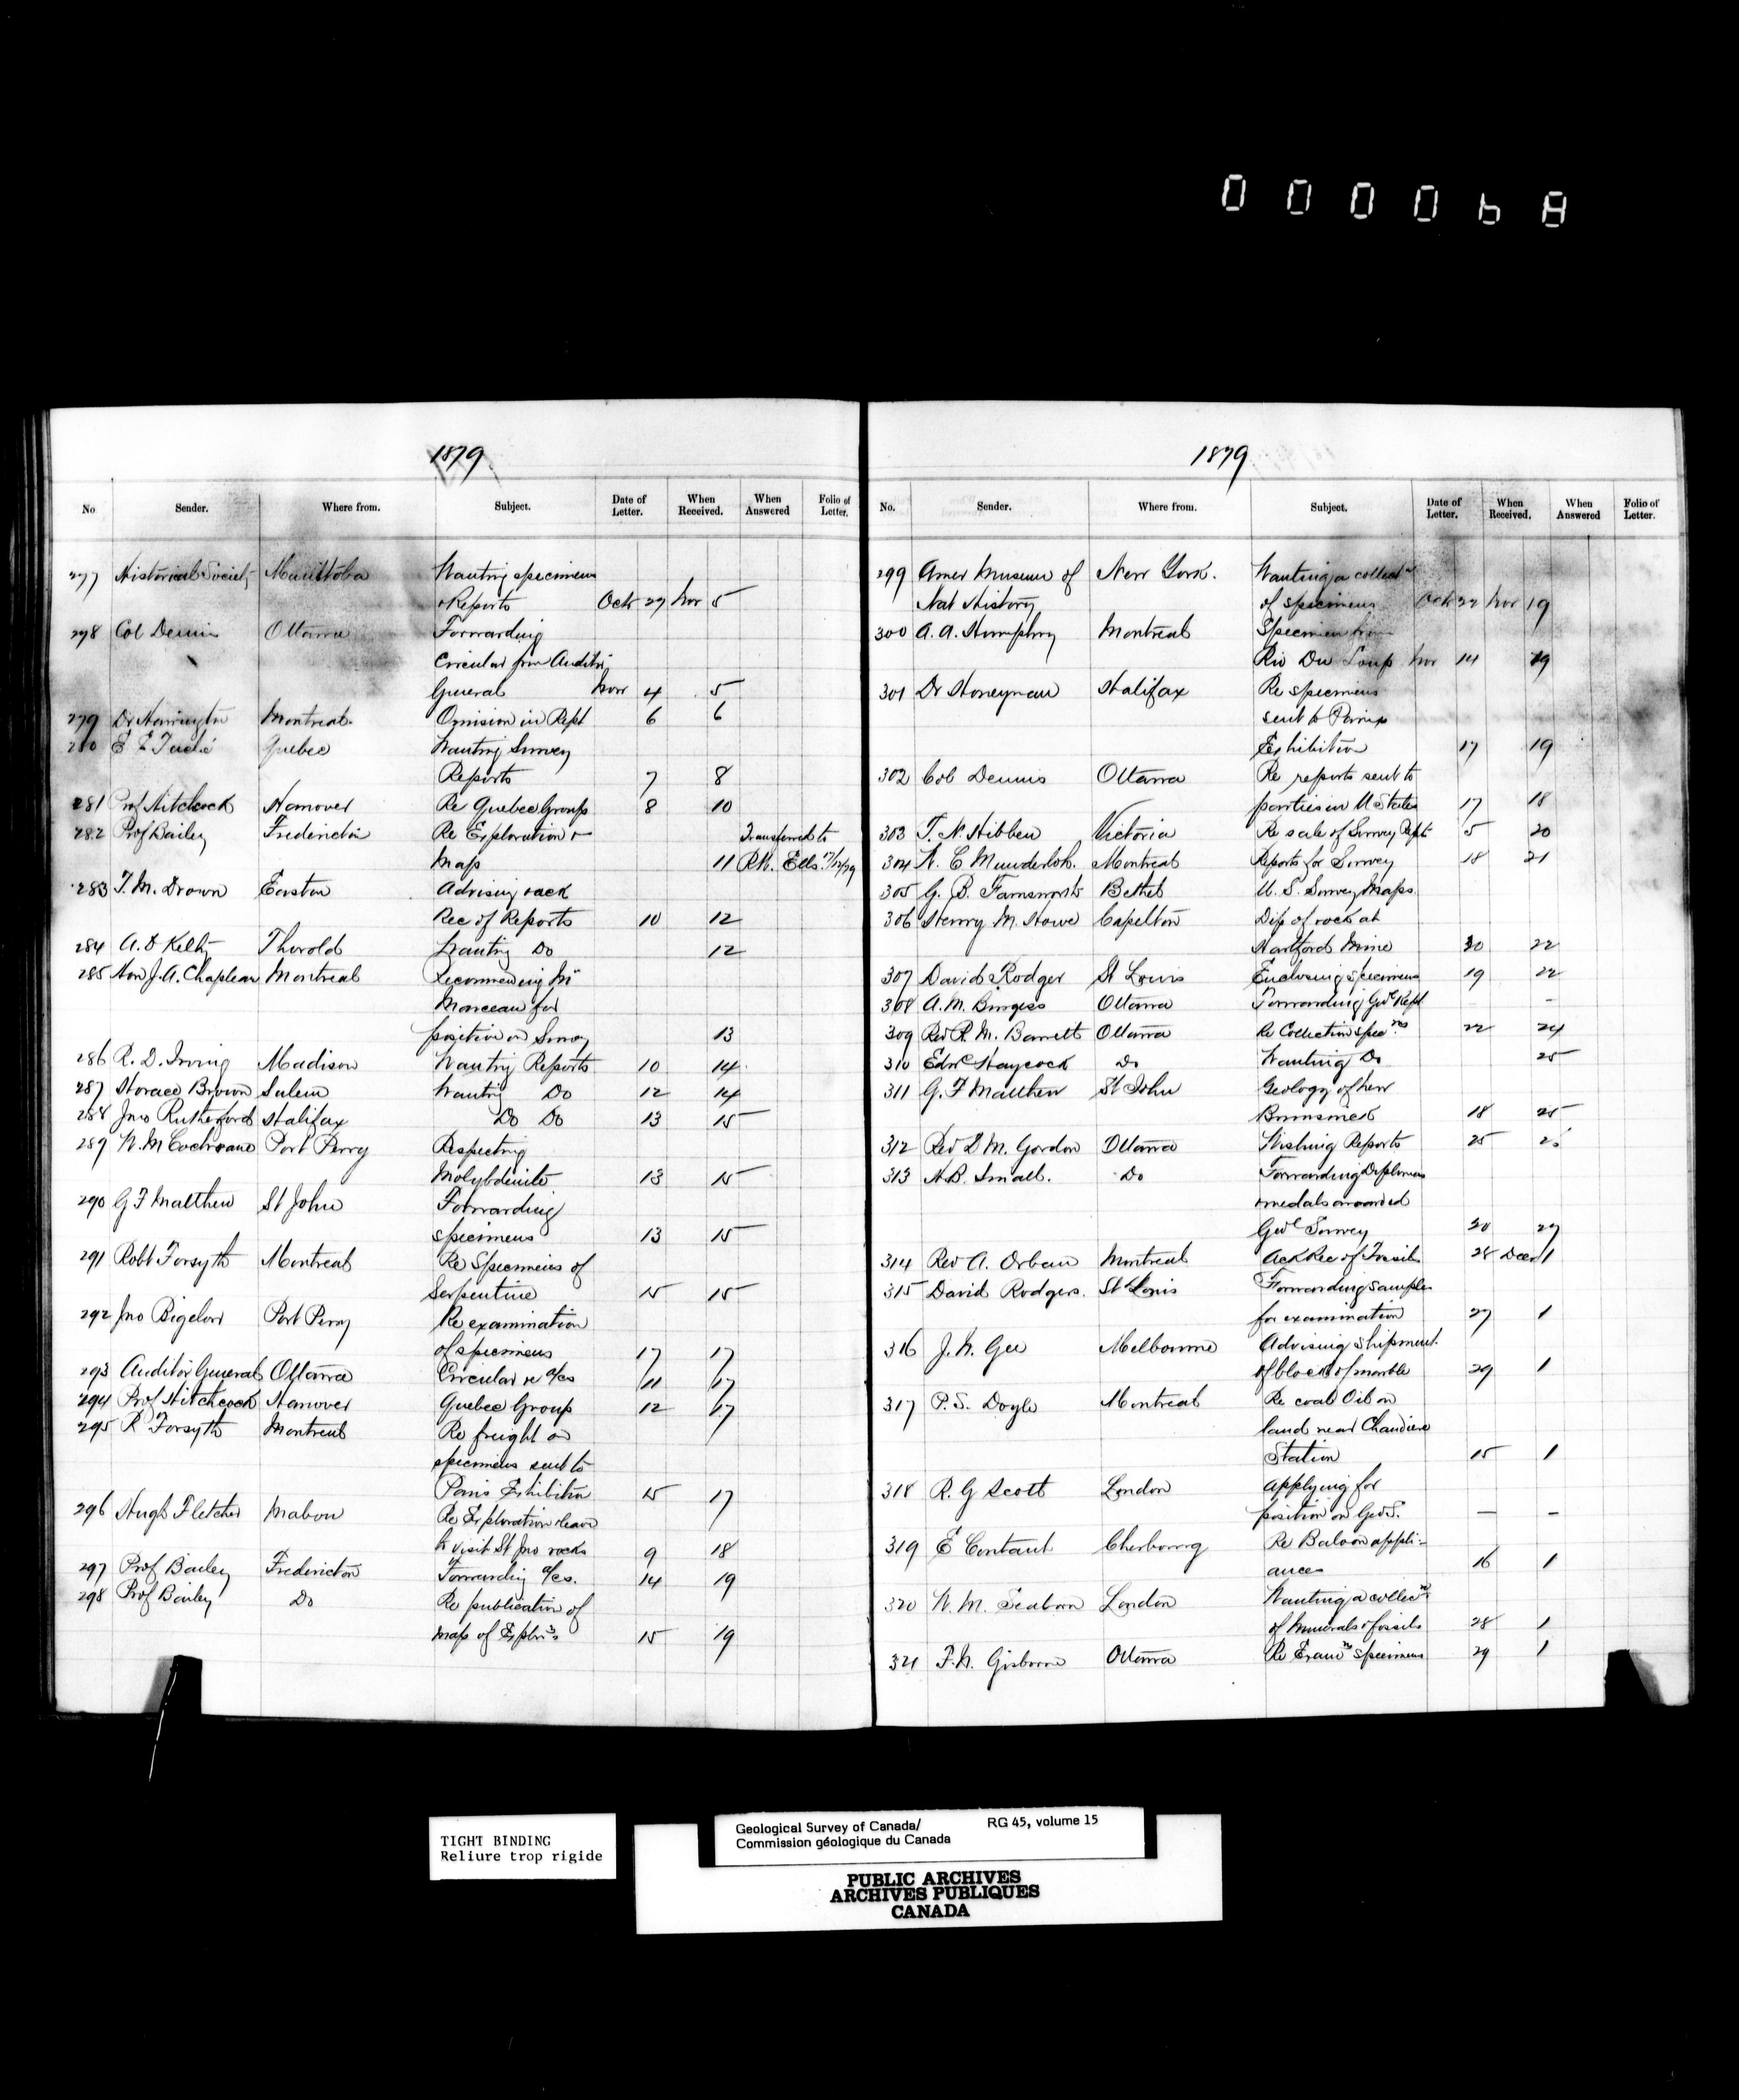 000068
1879
No Sender. Where from. Subject. Date of Letter. When Received. When Answered Folio of Letter.
277 Historical Society Manitoba Wanting specimens
& Reports Oct 27 Nov 5
278 Col Dennis Ottawa Forwarding
Circular from Auditor
General Nov 4 5
279 Dr Harrington Montreal Omision in Rept 6 6
280 E E Taché Quebec Wanting Survey
Reports 7 8
281 Prof Hitchcock Hanover Re Quebec Group 8 10
282 Prof Bailey Fredericton Re Exploration & Transferred to
Map 11 R.W. Ells 17/12/79
283 T. M. Drown Easton Advising &ack
Rec of Reports 10 12
284 A. D Kelly Thorold Wanting Do 12
285 Hon J. A. Chapleau Montreal Recommending Mr
Monceau for
position on Survey 13
286 R. D. Irving Madison Wanting Reports 10 14
287 Horace Brown Salem Wanting Do 12 14
288 Jno Rutherford Halifax Do Do 13 15
289 W. M Cochrane Port Perry Respecting
Molybdenite 13 15
290 G F Matthew St John Forwarding
specimens 13 15
291 Robt Forsyth Montreal Re Specimens of
Serpentine 15 15
292 Jno Bigelow Port Perry Re examination
of specimens 17 17
293 Auditor General Ottawa Circular re a/cs 11 17
294 Prof Hitchcock Hanover Quebec Group 12 17
295 R Forsyth Montreal Re freight on
specimens sent to
Paris Exhibition 15 17
296 Hugh Fletcher Mabou Re Exploration &leave
to visit St Jno rocks 9 18
297 Prof Bailey Fredericton Forwarding a/cs. 14 19
298 Prof Bailey Do Re publication of
map of Explns 15 19
1879
No. Sender. Where from. Subject. Date of Letter. When Received. When Answered Folio of Letter.
299 Amer Museum of New York. Wanting a collectn
Nat History of specimens Oct 22 Nov 19
300 A. A. Humphry Montreal Specimen from
Riv Du Loup Nov 14 19
301 Dr Honeyman Halifax Re specimens
sent to Paris
Exhibition 17 19
302 Col Dennis Ottawa Re reports sent to
parties in U States 17 18
303 T. N. Hibben Victoria Re sale of Survey Rept 5 20
304 W. C Munderloh. Montreal Reports for Survey 18 21
305 G. B. Farnsworth Bethel U. S. Survey Maps
306 Henry M. Howe Capelton Dip of rock at
Hartford Mine 20 22
307 David Rodger St Louis Enclosing specimens 19 22
308 A. M. Burgess Ottawa Forwarding Govt Rept –
309 Rev R. M. Barrett Ottawa Re Collection specns 22 24
310 Edwd Haycock Do Wanting Do 25
311 G. F Matthew St John Geology of New
Brunswick 18 25
312 Rev D M. Gordon Ottawa Wishing Reports 25 25
313 H. B. Small. Do Forwarding Diplomas
&medals awarded
Geol Survey 20 27
314 Rev A. Orban Montreal Ack Rec of Fossils 28 Dec 1
315 David Rodgers. St Louis Forwarding samples
for examination 27 1
316 J. N. Gee Melbourne Advising shipment
of block of marble 29 1
317 P. S. Doyle Montreal Re coal Oil on
land near Chaudiere
Station 15 1
318 R. G Scott London Applying for
position on Geol S. — –
319 E Contant Cherbourg Re Baloon appli-
ances 16 1
320 W. M. Seaborn London Wanting a collecn
of Minerals & fossils 28 1
321 F. N. Gisborne Ottawa Re Examn specimens 29 1
TIGHT BINDING
Reliure trop rigide
Geological Survey of Canada/ RG 45, volume 15
Commission géologique du Canada
PUBLIC ARCHIVES
ARCHIVES PUBLIQUES
CANADA